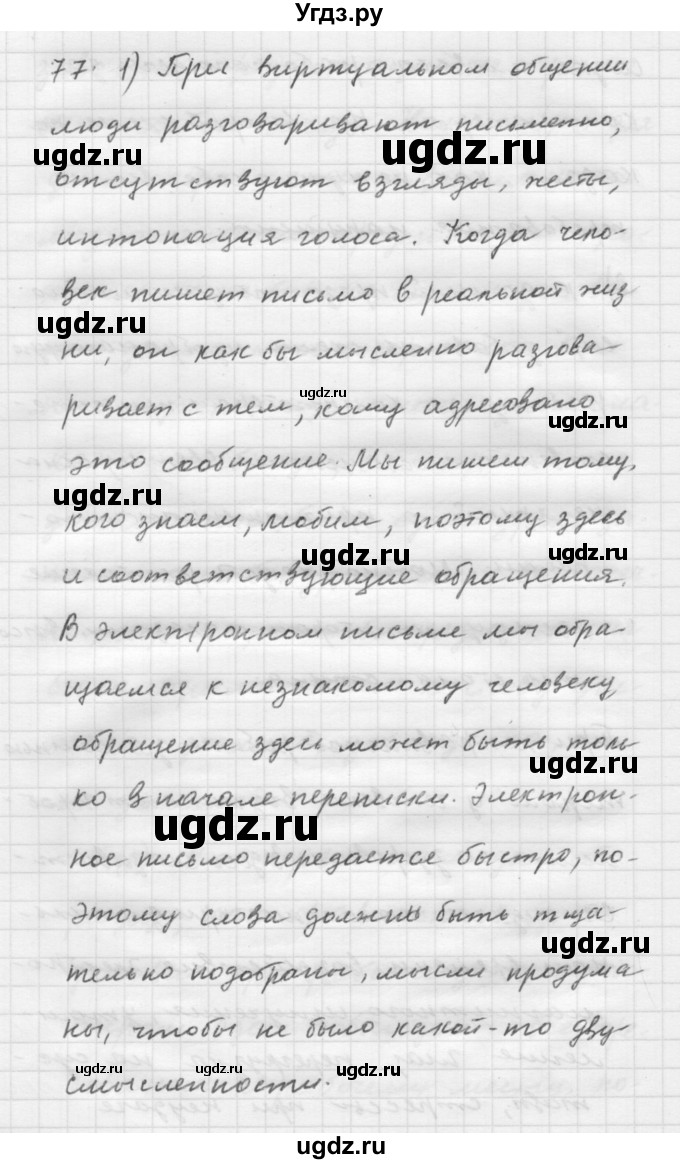 Угдз.ру
77. 1) При виртуальном общении
люди разговаривают письменно,
отсутствуют взгляды, жесты,
интонация голоса. Когда чело-
век пишет письмо в реальной жиз
ни, он как бы мысленно разгова-
ривает с тем, кому адресовано
это сообщение. Мы пишем тому,
кого знаем, любим, поэтому здесь
и соответствующие обращения.
В электронном письме мы обра-
щаемся к незнакомому человеку
обращение здесь может быть толь
ко в начале переписки. Электрон-
ное письмо передается быстро, по-
этому слова должны быть тща-
тельно подобраны, мысли продума
ны, чтобы не было какой-то дву-
смысленности.
ugdz.ru
ugdz.ru
ugdz.ru
ugdz.ru
ugdz.ru
ugdz.ru
ugdz.ru
ugdz.ru
ugdz.ru
ugdz.ru
ugdz.ru
ugdz.ru